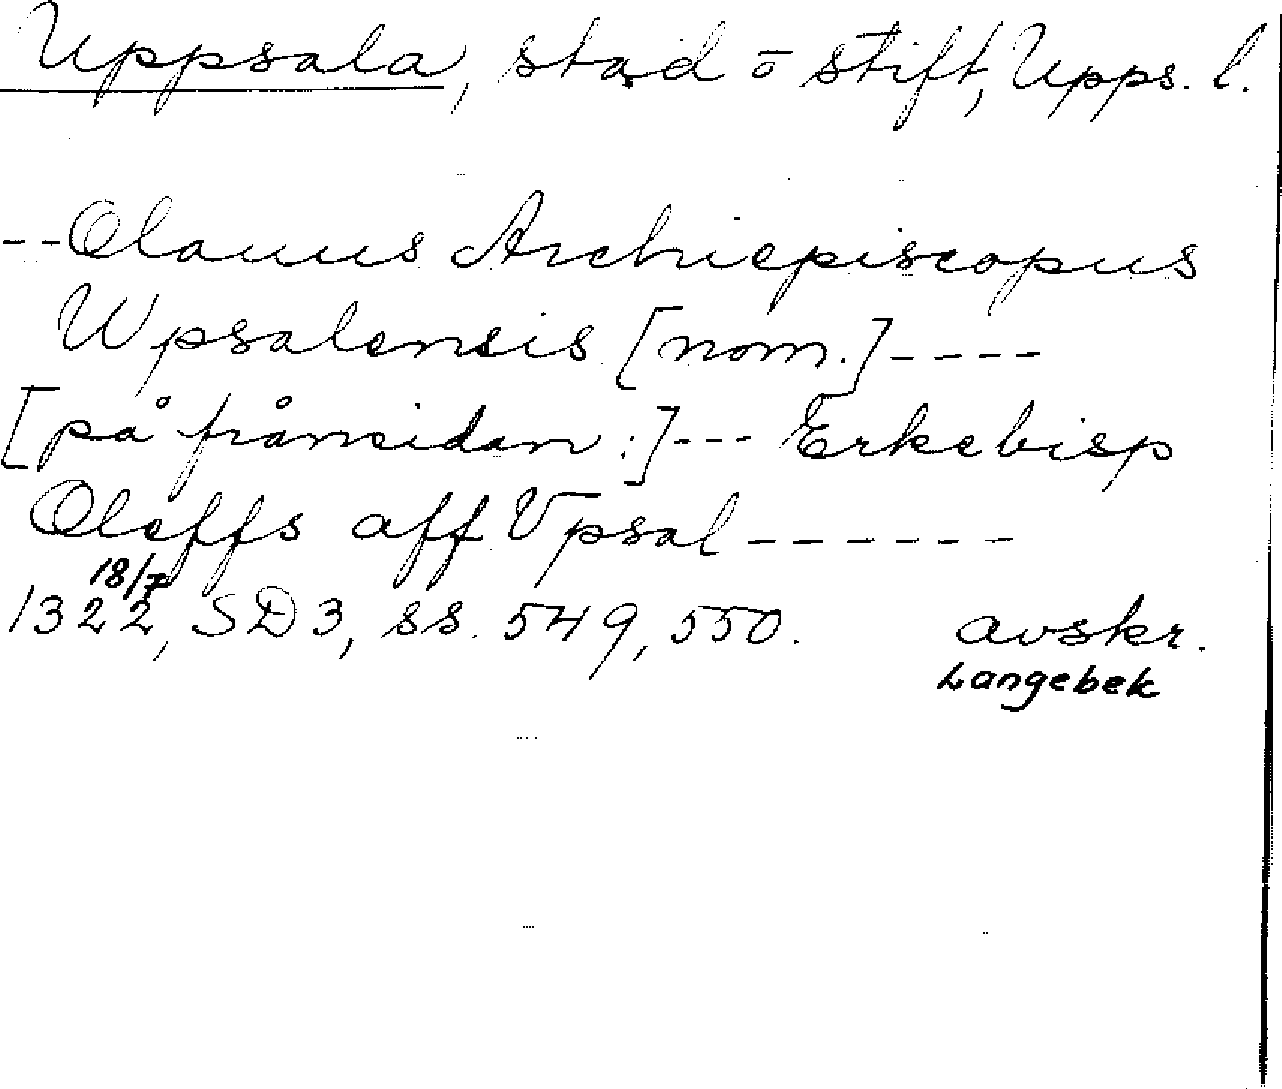 Uppsala, stad o stift, Upps. l.
--Olauus Archiepiscopus
Wpsalensis [nom.]----
[på frånsidan:]--- Erkebisp
Oleffs aff Vpsal------
18/7
1322, SD 3, ss. 549, 550. avskr.
Langebek